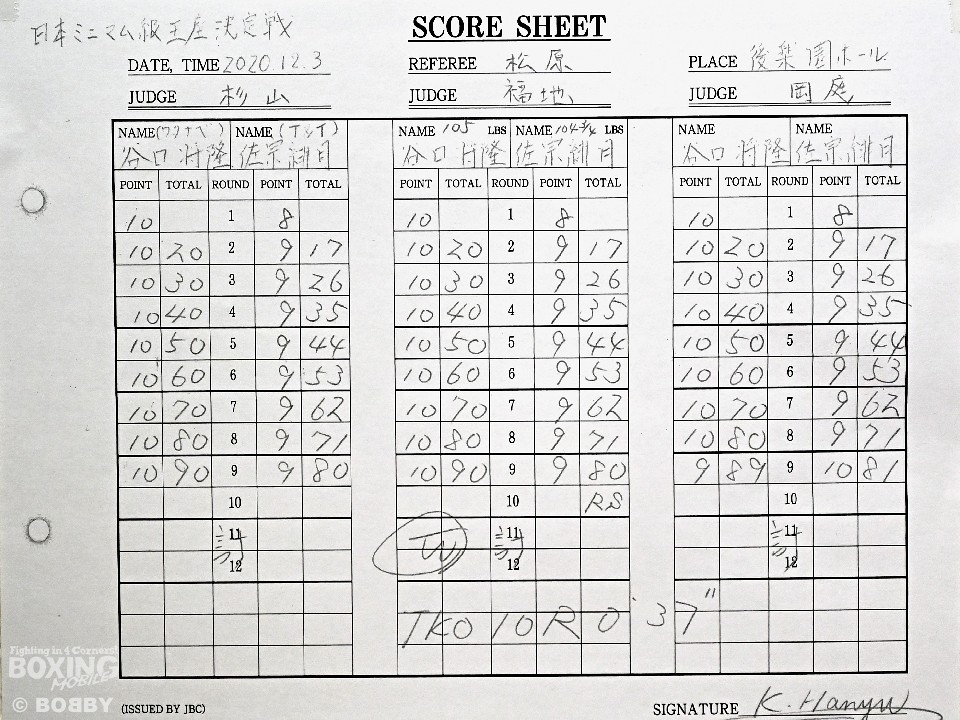 日本ミニマム級王座決定戦
SCORE SHEET
DATE, TIME 2020.12.3 REFEREE 松原 PLACE 後楽園ホール
JUDGE 杉山 JUDGE 福地 JUDGE 岡庭
NAME (ワタナベ) NAME NAME 105 LBS NAME 104 3/4 LBS NAME NAME
谷口将隆 佐宗緋月 谷口将隆 佐宗緋月 谷口将隆 佐宗緋月
POINT TOTAL ROUND POINT TOTAL POINT TOTAL ROUND POINT TOTAL POINT TOTAL ROUND POINT TOTAL
10 1 8 10 1 8 10 1 8
10 20 2 9 17 10 20 2 9 17 10 20 2 9 17
10 30 3 9 26 10 30 3 9 26 10 30 3 9 26
10 40 4 9 35 10 40 4 9 35 10 40 4 9 35
10 50 5 9 44 10 50 5 9 44 10 50 5 9 44
10 60 6 9 53 10 60 6 9 53 10 60 6 9 53
10 70 7 9 62 10 70 7 9 62 10 70 7 9 62
10 80 8 9 71 10 80 8 9 71 10 80 8 9 71
10 90 9 9 80 10 90 9 9 80 9 89 9 10 81
10 10 RS 10
11 W 11 11
12 12 12
TKO 10R 0'37"
Fighting in 4 Corners!
BOXING
MOBILE
© BOBBY
(ISSUED BY JBC) SIGNATURE K. Hanyu